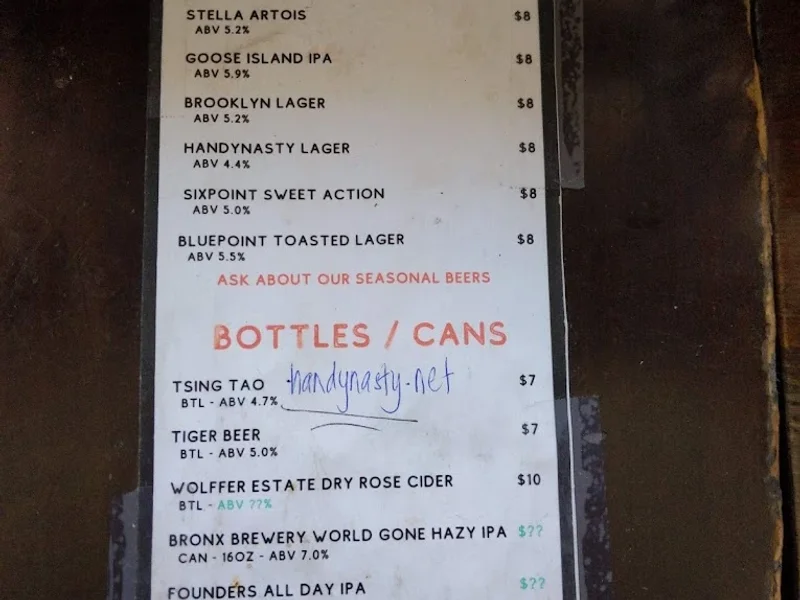 STELLA ARTOIS $8
ABV 5.2%
GOOSE ISLAND IPA $8
ABV 5.9%
BROOKLYN LAGER $8
ABV 5.2%
HANDYNASTY LAGER $8
ABV 4.4%
SIXPOINT SWEET ACTION $8
ABV 5.0%
BLUEPOINT TOASTED LAGER $8
ABV 5.5%
ASK ABOUT OUR SEASONAL BEERS
BOTTLES / CANS
TSING TAO handynasty.net $7
BTL - ABV 4.7%
TIGER BEER $7
BTL - ABV 5.0%
WOLFFER ESTATE DRY ROSE CIDER $10
BTL - ABV ??%
BRONX BREWERY WORLD GONE HAZY IPA $??
CAN - 16OZ - ABV 7.0%
FOUNDERS ALL DAY IPA $??